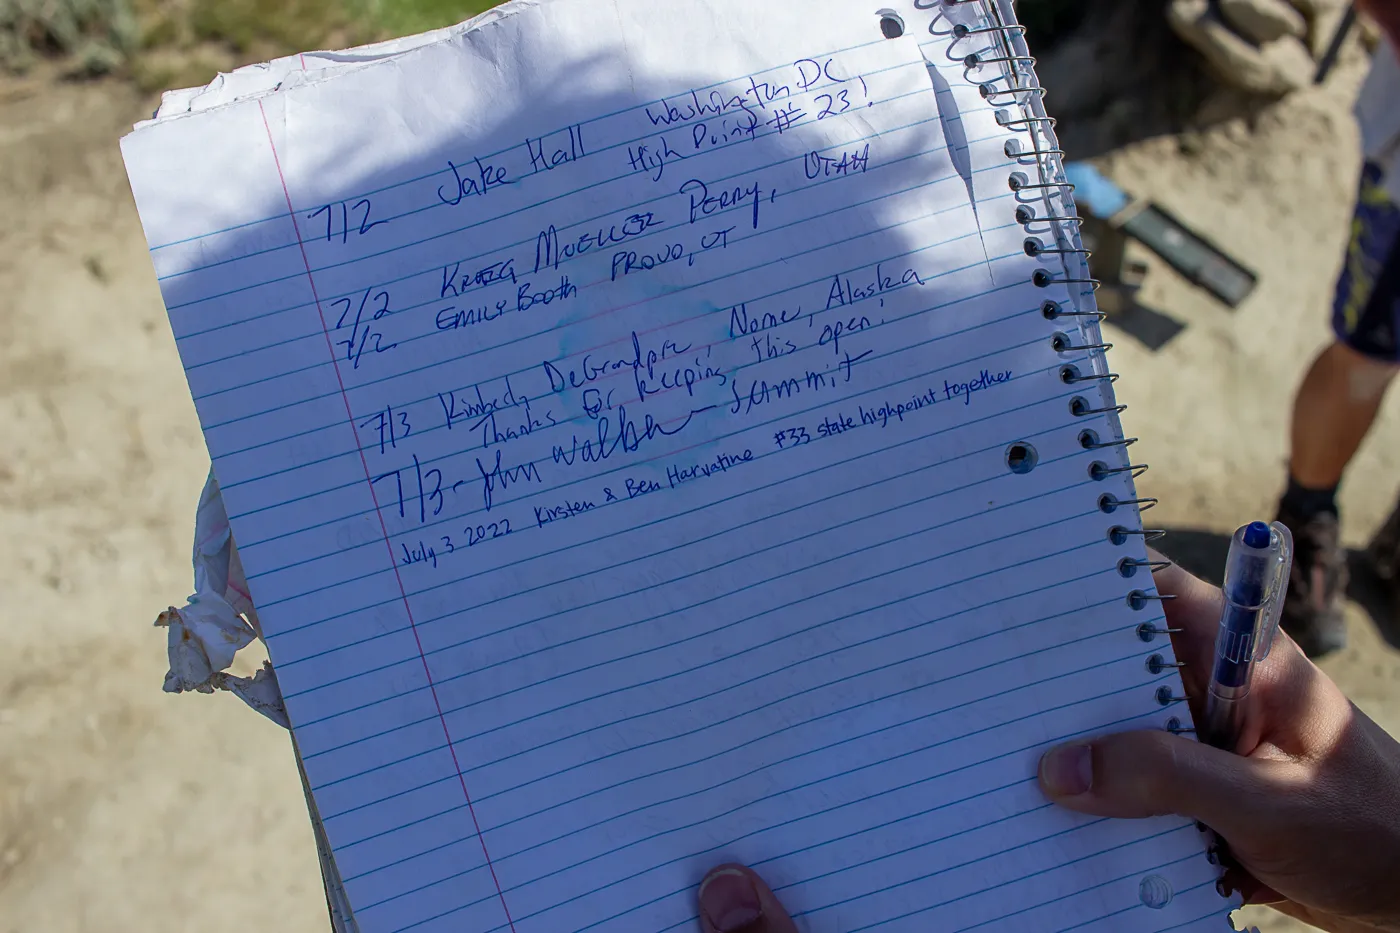 7/2 Jake Hall Washington DC
High Point # 23!
7/2 KREIG MUELLER PERRY, UTAH
7/2 EMILY BOOTH PROVO, UT
7/3 Kimberly DeGrandpre, Nome, Alaska
Thanks for keeping this open!
7/3 - John Walsh - summit
July 3 2022 Kirsten & Ben Harvatine #33 state highpoint together